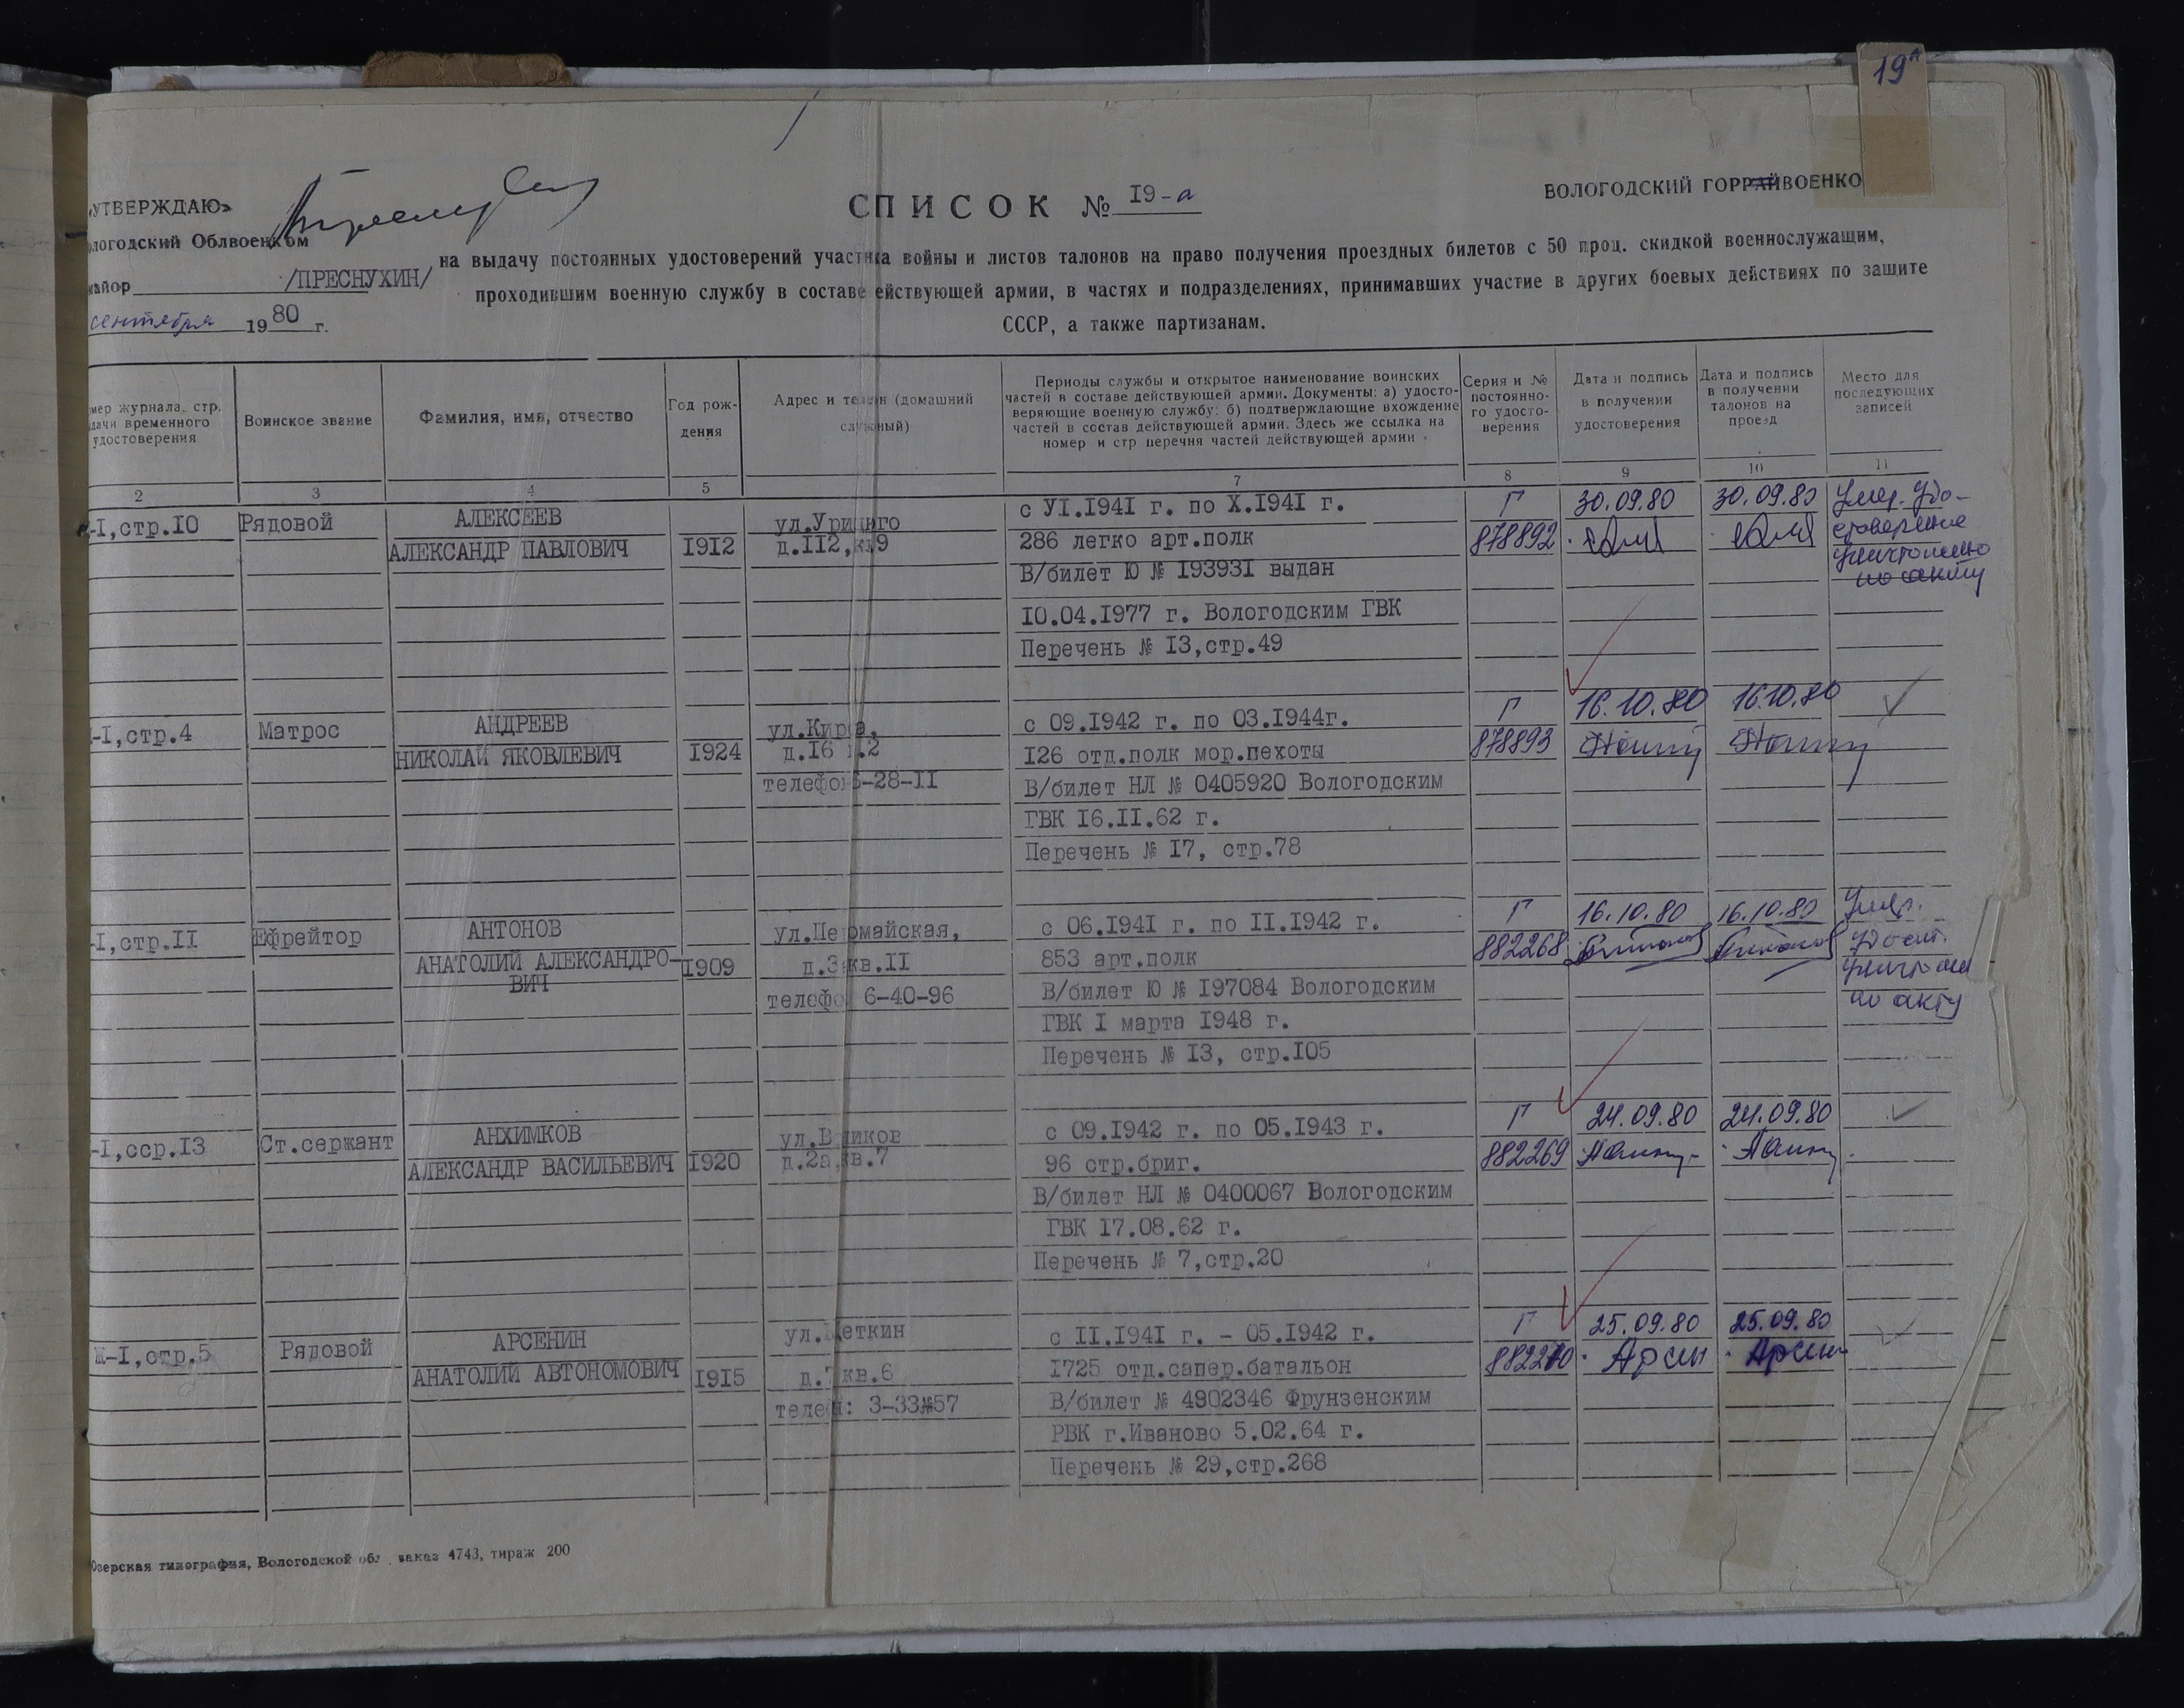 19А
«УТВЕРЖДАЮ»
ологодский Облвоенком
майор /ПРЕСНУХИН/
сентября 1980 г.
СПИСОК № I9-а
ВОЛОГОДСКИЙ ГОРРАЙВОЕНКО
на выдачу постоянных удостоверений участника войны и листов талонов на право получения проездных билетов с 50 проц. скидкой военнослужащим,
проходившим военную службу в составе ействующей армии, в частях и подразделениях, принимавших участие в других боевых действиях по защите
СССР, а также партизанам.
мер журнала, стр.
дачи временного
удостоверения
Воинское звание
Фамилия, имя, отчество
Год рож-
дения
Адрес и теле н (домашний
служ ный)
Периоды службы и открытое наименование воинских
частей в составе действующей армии. Документы: а) удосто-
веряющие военную службу; б) подтверждающие вхождение
частей в состав действующей армии. Здесь же ссылка на
номер и стр перечня частей действующей армии
Серия и №
постоянно-
го удосто-
верения
Дата и подпись
в получении
удостоверения
Дата и подпись
в получении
талонов на
проезд
Место для
последующих
записей
2 3 4 5 7 8 9 10 11
-I,стр.I0 Рядовой АЛЕКСЕЕВ
АЛЕКСАНДР ПАВЛОВИЧ I9I2
ул.Уриц го
д.II2,к 9
с УI.I94I г. по X.I94I г.
286 легко арт.полк
В/билет Ю № I9393I выдан
I0.04.I977 г. Вологодским ГВК
Перечень № I3,стр.49
Г
878892
30.09.80 30.09.80
Умер. Удо-
стоверение
уничтожено
по акту
-I,стр.4 Матрос АНДРЕЕВ
НИКОЛАЙ ЯКОВЛЕВИЧ I924
ул.Киро а,
д.I6 .2
телефо 6-28-II
с 09.I942 г. по 03.I944г.
I26 отд.полк мор.пехоты
В/билет НЛ № 0405920 Вологодским
ГВК I6.II.62 г.
Перечень № I7, стр.78
Г
878893
16.10.80 16.10.80
-I,стр.II Ефрейтор АНТОНОВ
АНАТОЛИЙ АЛЕКСАНДРО-
ВИЧ
I909
ул.Пе рмайская,
д.3 кв.II
телефо 6-40-96
с 06.I94I г. по II.I942 г.
853 арт.полк
В/билет Ю № I97084 Вологодским
ГВК I марта I948 г.
Перечень № I3, стр.I05
Г
882268
16.10.80 16.10.80
Умер.
по акту
-I,сср.I3 Ст.сержант АНХИМКОВ
АЛЕКСАНДР ВАСИЛЬЕВИЧ I920
ул.В иков
д.2а кв.7
с 09.I942 г. по 05.I943 г.
96 стр.бриг.
В/билет НЛ № 0400067 Вологодским
ГВК I7.08.62 г.
Перечень № 7,стр.20
Г
882269
24.09.80 24.09.80
Ж-I,стр.5 Рядовой АРСЕНИН
АНАТОЛИЙ АВТОНОМОВИЧ I9I5
ул. еткин
д.7 кв.6
теле н: 3-33№57
с II.I94I г. - 05.I942 г.
I725 отд.сапер.батальон
В/билет № 4902346 Фрунзенским
РВК г.Иваново 5.02.64 г.
Перечень № 29,стр.268
Г
882270
25.09.80 25.09.80
Арсен Арсен
Озерская типография, Вологодской обл , заказ 4743, тираж 200